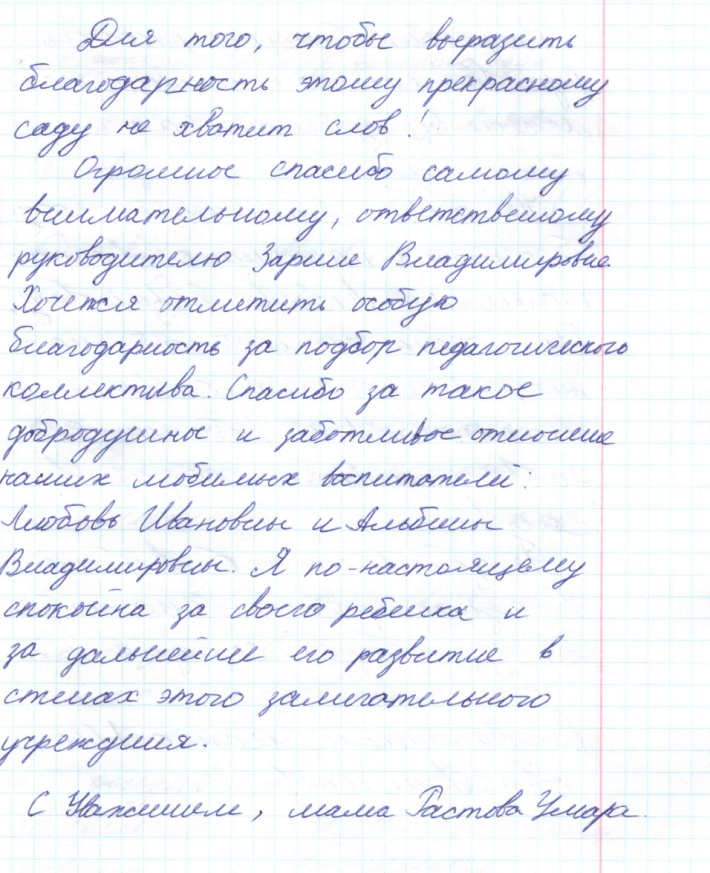 Для того, чтобы выразить
благодарность этому прекрасному
саду не хватит слов!
Огромное спасибо самому
внимательному, ответственному
руководителю Зарине Владимировне.
Хочется отметить особую
благодарность за подбор педагогического
коллектива. Спасибо за такое
добродушное и заботливое отношение
наших любимых воспитателей:
Любовь Ивановны и Альбины
Владимировны. Я по-настоящему
спокойна за своего ребенка и
за дальнейшее его развитие в
стенах этого замечательного
учреждения.
С Уважением, мама Гастова Умара.